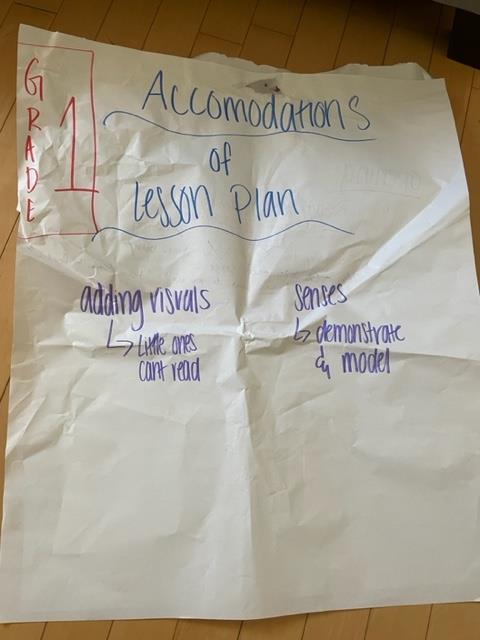 GRADE
1
Accomodations
of
Lesson Plan
adding visuals
↳ Little ones
cant read
senses
↳ demonstrate
& model